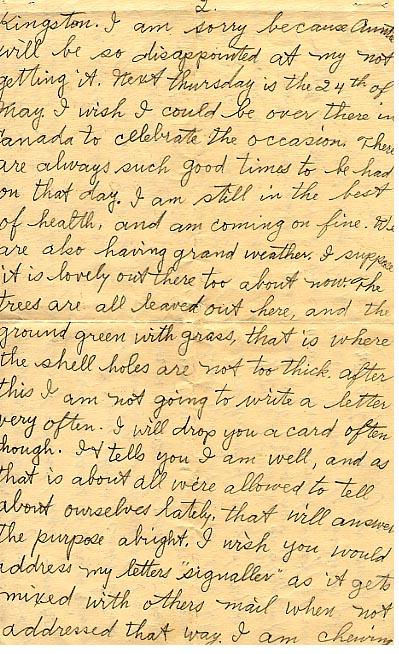 2.
Kingston. I am sorry because Aunt
will be so disappointed at my not
getting it. Next Thursday is the 24th of
May I wish I could be over there in
Canada to celebrate the occasion. There
are always such good times to be had
on that day. I am still in the best
of health, and am coming on fine. We
are also having grand weather. I suppose
it is lovely out there too about now. The
trees are all leaved out here, and the
ground green with grass, that is where
the shell holes are not too thick. After
this I am not going to write a letter
very often. I will drop you a card often
though. It tells you I am well, and as
that is about all we're allowed to tell
about ourselves lately, that will answer
the purpose alright. I wish you would
address my letters "signaller" as it gets
mixed with others mail when not
addressed that way. I am chewing